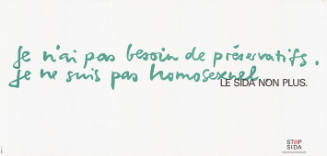 Je n'ai pas besoin de préservatifs.
Je ne suis pas homosexuel.
LE SIDA NON PLUS.
STOP
SIDA